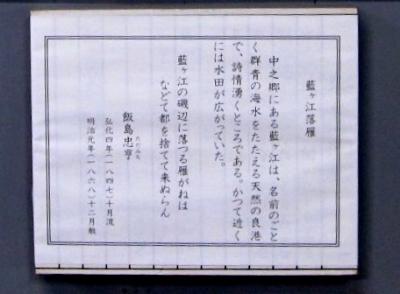 藍ヶ江落雁
中之郷にある藍ヶ江は、名前のごと
く群青の海水をたたえる天然の良港
で、詩情湧くところである。かつて近く
には水田が広がっていた。
藍ヶ江の磯辺に落つる雁がねは
などて都を捨てて来ぬらん
飯島忠亨
弘化四年(一八四七)十月流
明治元年(一八六八)十二月赦